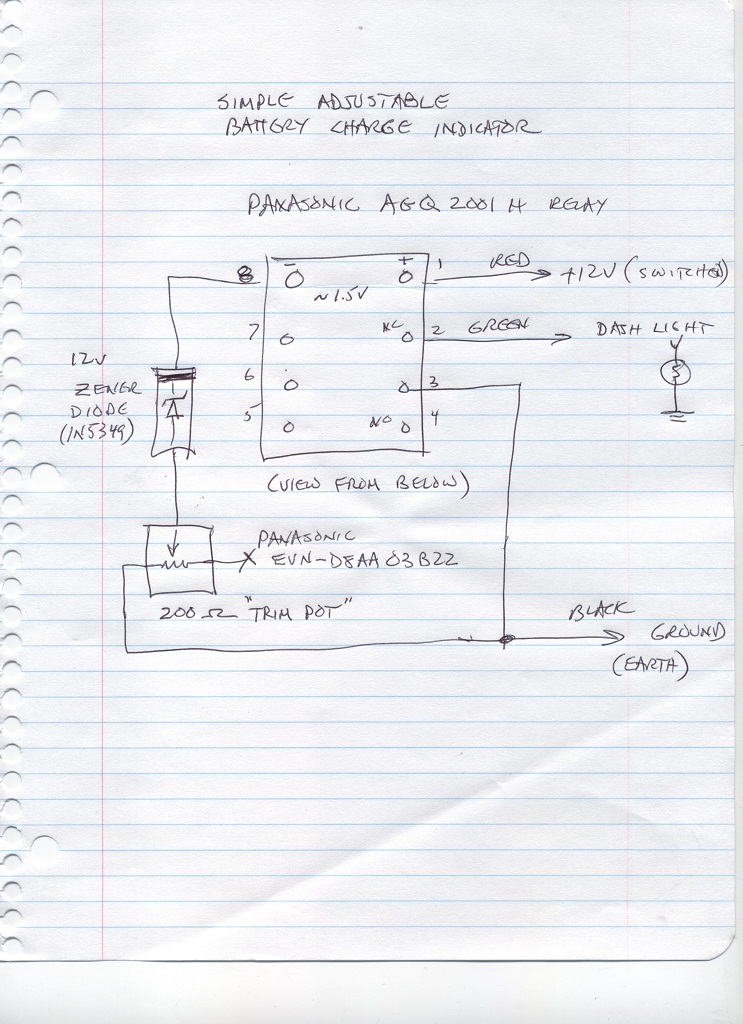 SIMPLE ADJUSTABLE
BATTERY CHARGE INDICATOR
PANASONIC AGQ 2001 H RELAY
8 - + 1 RED +12V (SWITCHED)
~1.5V
7 NC 2 GREEN DASH LIGHT
12V
ZENER
DIODE
(IN5349)
6 3
5 NO 4
(VIEW FROM BELOW)
PANASONIC
EVN-D8AA03B22
200 Ω "TRIM POT"
BLACK
GROUND
(EARTH)